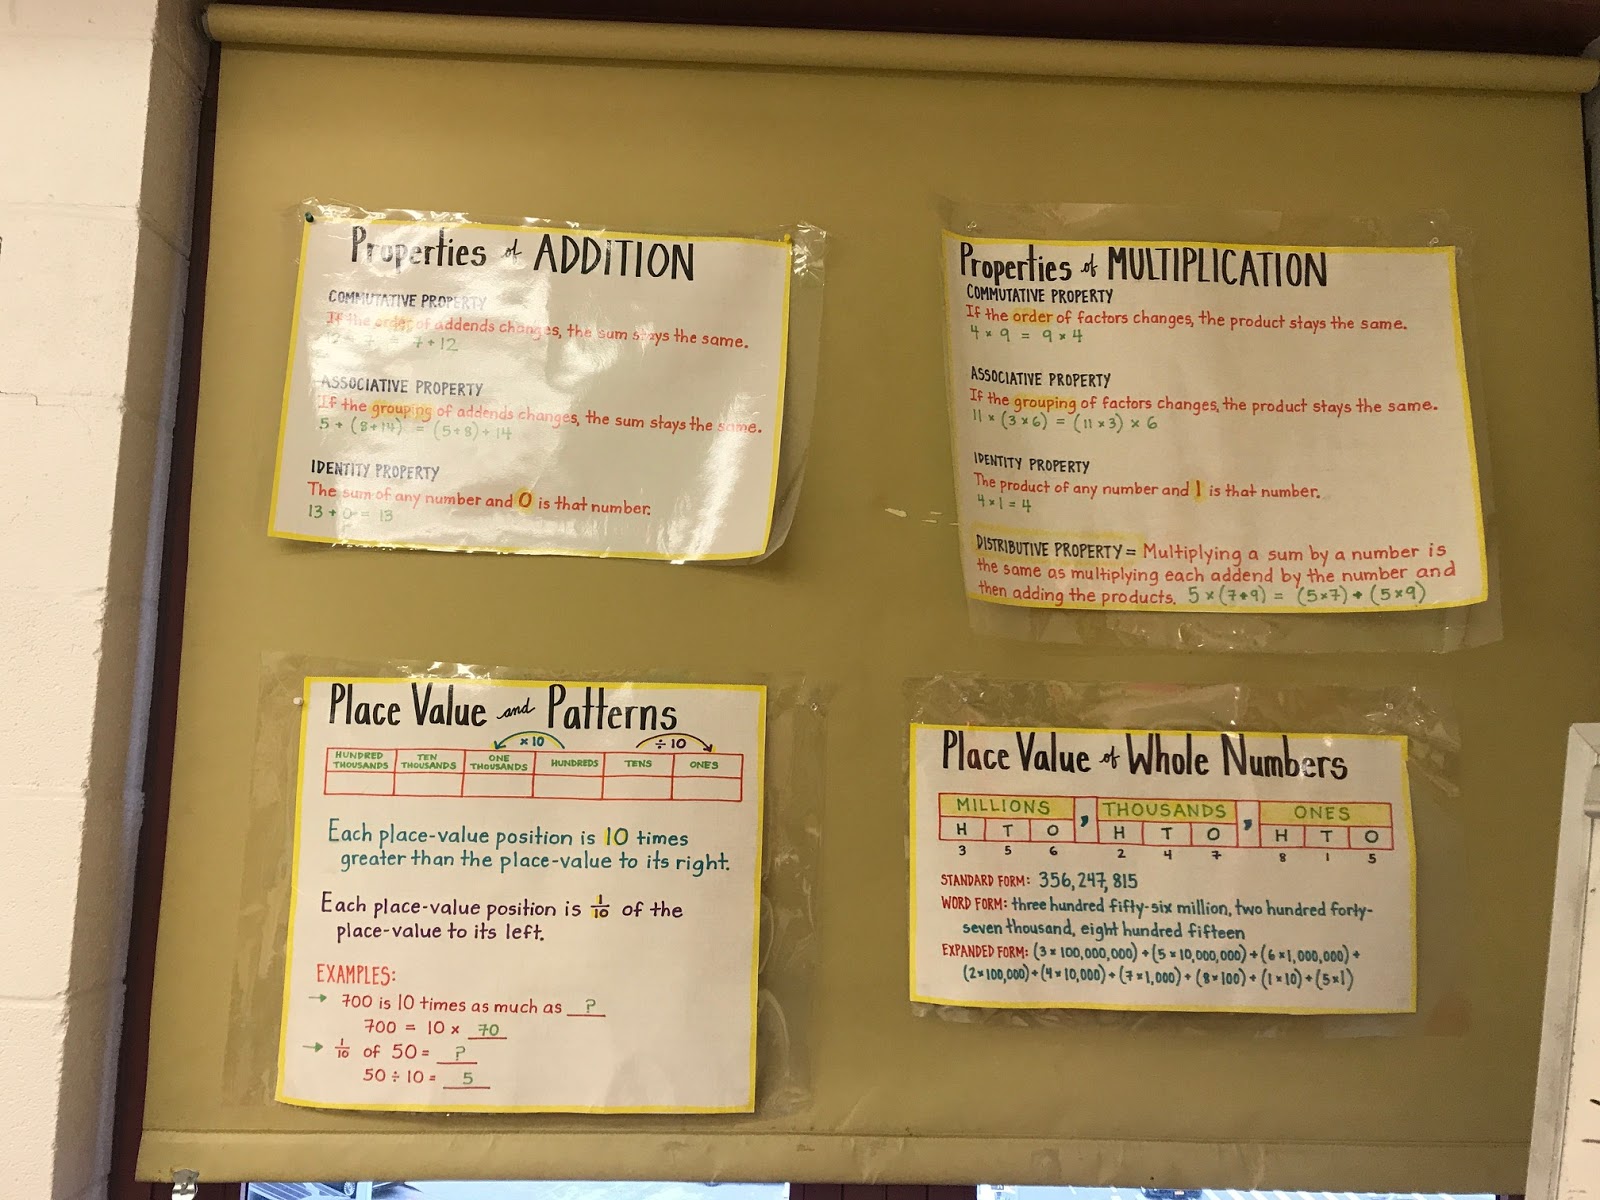 Properties of ADDITION
COMMUTATIVE PROPERTY
If the order of addends changes, the sum stays the same.
12 + 7 = 7 + 12
ASSOCIATIVE PROPERTY
If the grouping of addends changes, the sum stays the same.
5 + (8+14) = (5+8) + 14
IDENTITY PROPERTY
The sum of any number and 0 is that number.
13 + 0 = 13
Properties of MULTIPLICATION
COMMUTATIVE PROPERTY
If the order of factors changes, the product stays the same.
4 × 9 = 9 × 4
ASSOCIATIVE PROPERTY
If the grouping of factors changes, the product stays the same.
11 × (3 × 6) = (11 × 3) × 6
IDENTITY PROPERTY
The product of any number and 1 is that number.
4 × 1 = 4
DISTRIBUTIVE PROPERTY = Multiplying a sum by a number is
the same as multiplying each addend by the number and
then adding the products. 5 × (7+9) = (5×7) + (5×9)
Place Value and Patterns
×10 ÷10
HUNDRED THOUSANDS TEN THOUSANDS ONE THOUSANDS HUNDREDS TENS ONES
Each place-value position is 10 times
greater than the place-value to its right.
Each place-value position is 1/10 of the
place-value to its left.
EXAMPLES:
→ 700 is 10 times as much as ?
700 = 10 × 70
→ 1/10 of 50 = ?
50 ÷ 10 = 5
Place Value of Whole Numbers
MILLIONS , THOUSANDS , ONES
H T O H T O H T O
3 5 6 2 4 7 8 1 5
STANDARD FORM: 356,247,815
WORD FORM: three hundred fifty-six million, two hundred forty-
seven thousand, eight hundred fifteen
EXPANDED FORM: (3 × 100,000,000) + (5 × 10,000,000) + (6 × 1,000,000) +
(2×100,000) + (4×10,000) + (7×1,000) + (8×100) + (1×10) + (5×1)